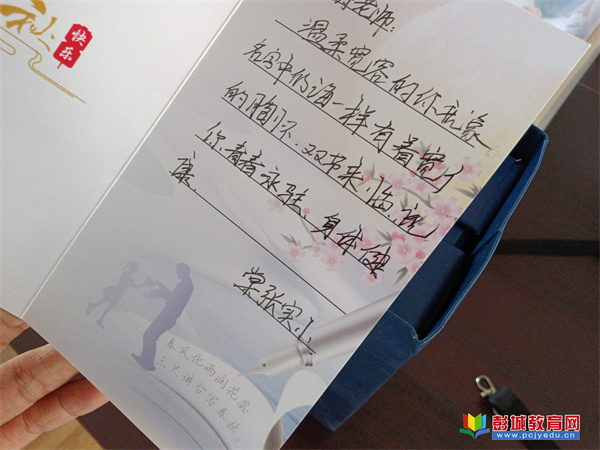 秋
快乐
老师：
温柔宽容的你就象
名字中的海一样有着宽广
的胸怀．双节来临，祝
你青春永驻、身体健
康．
棠张实小
春风化雨润花蕊
三尺讲台写春秋。
彭城教育网
www.pcjyedu.cn